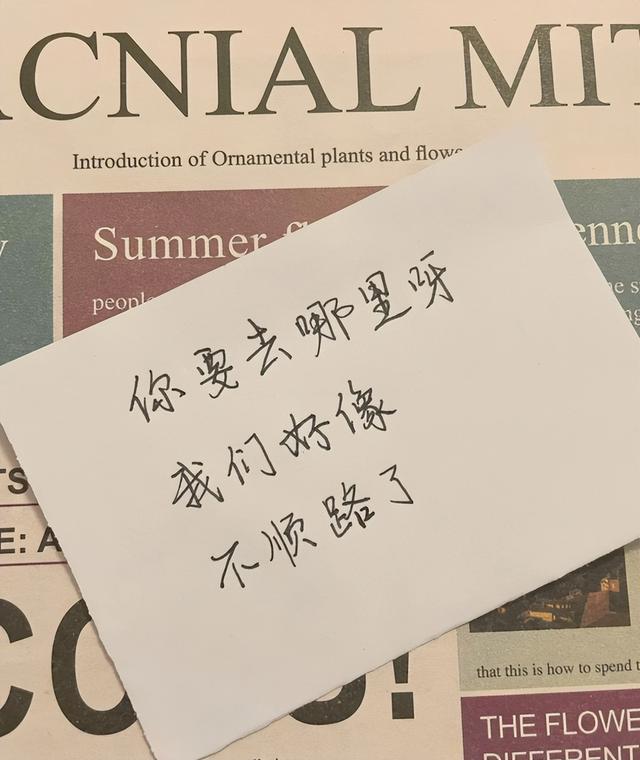 ACNIAL MIT
Introduction of Ornamental plants and
Summer
你要去哪里呀
我们好像
不顺路了
E: A
that this is how to spend
THE FLOWE
DIFFERENT